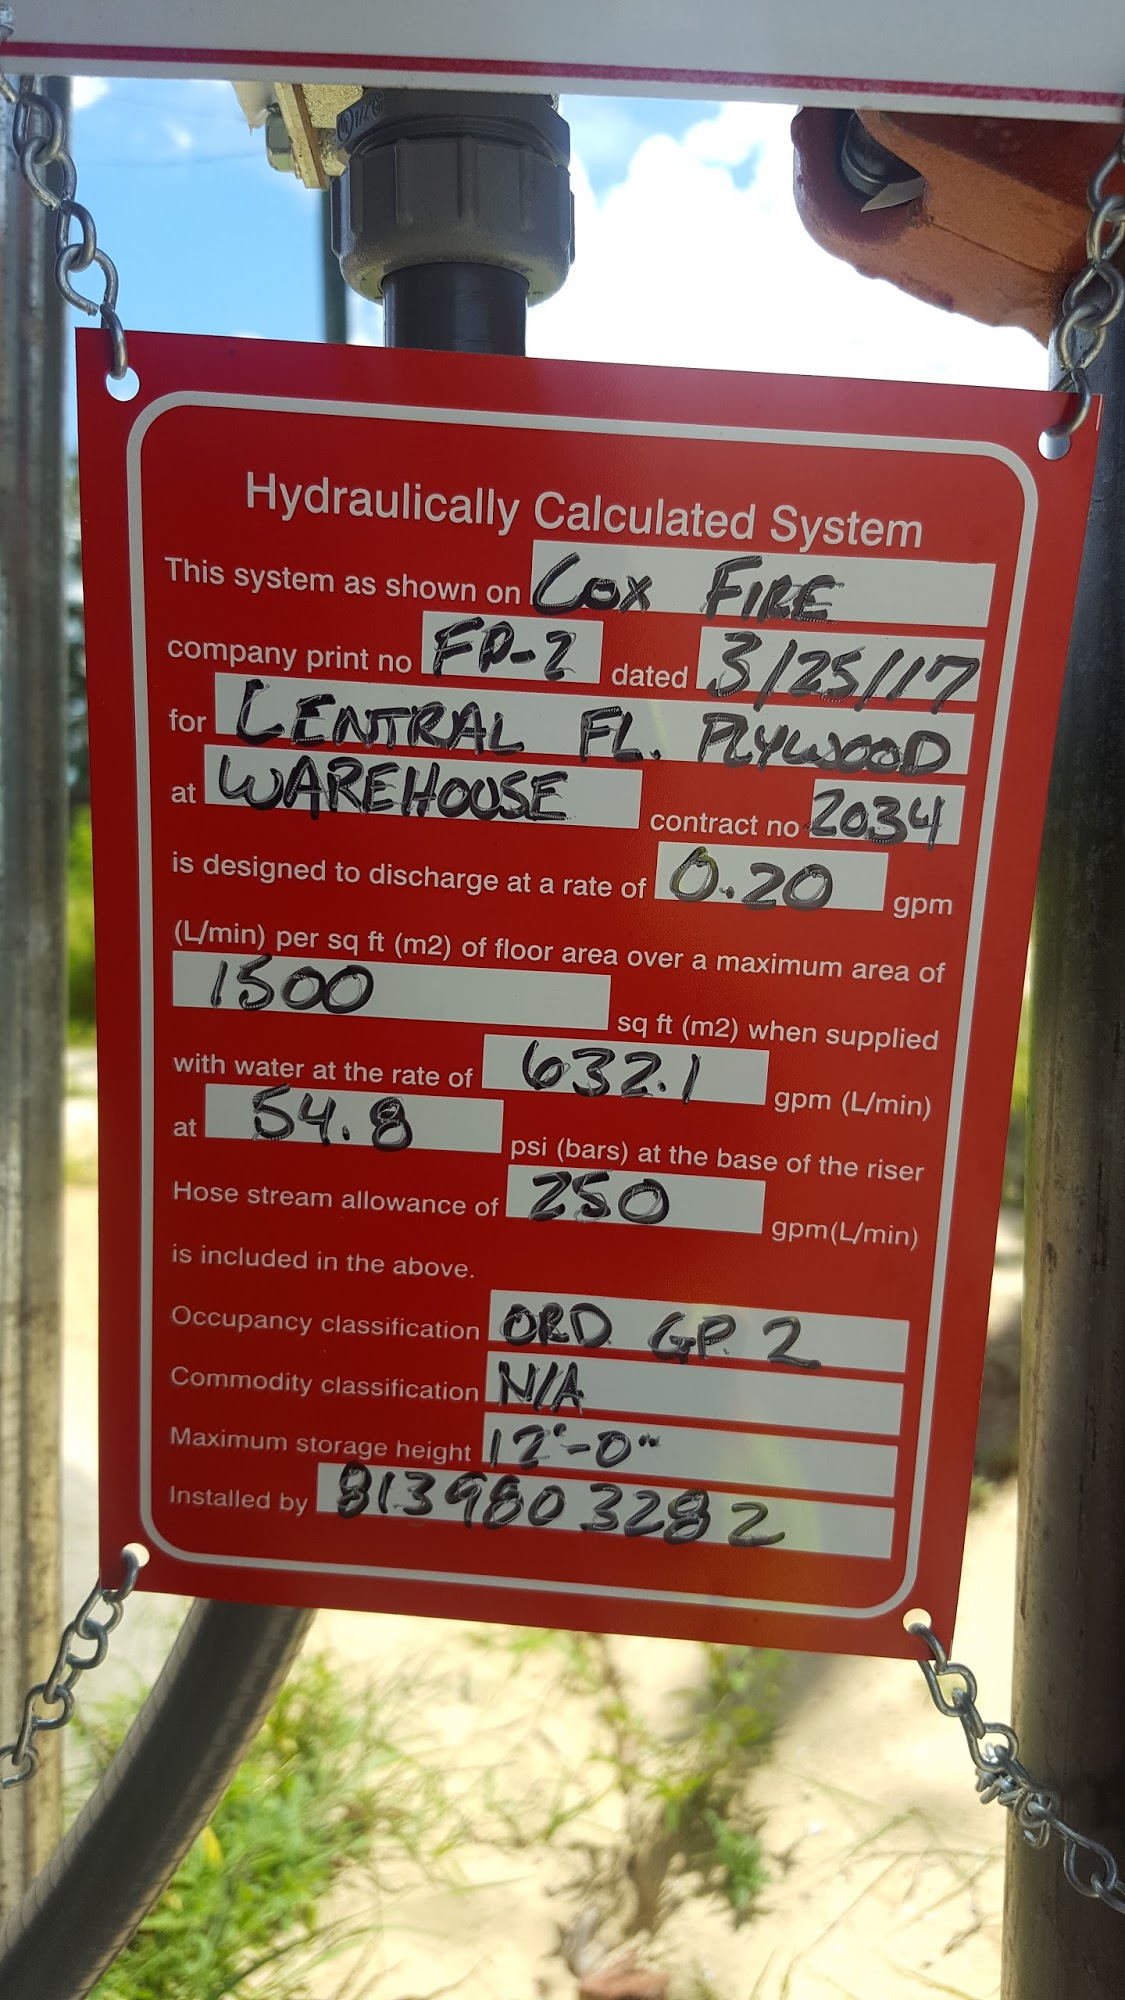 Hydraulically Calculated System
This system as shown on COX FIRE
company print no FP-2 dated 3/25/17
for CENTRAL FL. PLYWOOD
at WAREHOUSE contract no 2034
is designed to discharge at a rate of 0.20 gpm
(L/min) per sq ft (m2) of floor area over a maximum area of
1500 sq ft (m2) when supplied
with water at the rate of 632.1 gpm (L/min)
at 54.8 psi (bars) at the base of the riser
Hose stream allowance of 250 gpm(L/min)
is included in the above.
Occupancy classification ORD. GP. 2
Commodity classification N/A
Maximum storage height 12'-0"
Installed by 813 980 3282